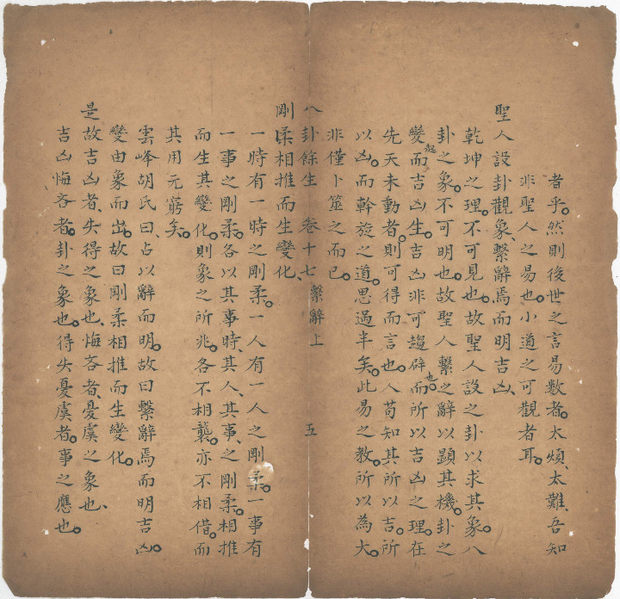 者乎。然則後世之言易數者。太煩、太難、吾知
非聖人之易也。小道之可觀者耳。
聖人設卦觀象、繫辭焉而明吉凶、
乾坤之理。不可見也。故聖人設之卦以求其象。八
卦之象。不可明也。故聖人繫之辭以顯其機。卦之
變而起吉凶生。吉凶非可趨辟也而所以吉凶之理。在
先天未動者。則可得而言也。人苟知其所以吉。所
以凶。而斡旋之道。思過半矣。此易之教。所以為大。
非僅卜筮之而已。
八卦餘生 卷十七 繫辭上 五
剛柔相推而生變化、
一時有一時之剛柔。一人有一人之剛柔。一事有
一事之剛柔。各以其事、時、其人、其事、之剛柔。相推
而生其變化。則象之所兆。各不相襲。亦不相借。而
其用元窮矣。
雲峰胡氏曰、占以辭而明。故曰繫辭焉而明吉凶。
變由象而出。故曰剛柔相推而生變化。
是故吉凶者、失得之象也、悔吝者、憂虞之象也、
吉凶悔吝者。卦之象也。得失憂虞者。事之應也。